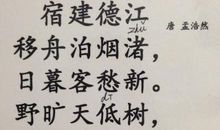 宿建德江
唐 孟浩然
zhǔ
移舟泊烟渚，
日暮客愁新。
dī
野旷天低树，